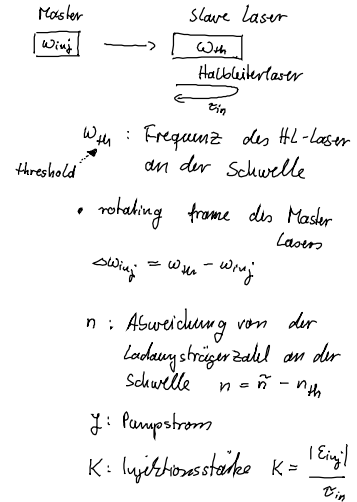 Master Slave Laser
ω_inj → ω_th
Halbleiterlaser
τ_in
ω_th : Frequenz des HL-Laser
an der Schwelle
threshold
• rotating frame des Master
Lasers
Δω_inj = ω_th - ω_inj
n : Abweichung von der
Ladungsträgerzahl an der
Schwelle n = ñ - n_th
J : Pumpstrom
K : Injektionsstärke K = |E_inj| / τ_in